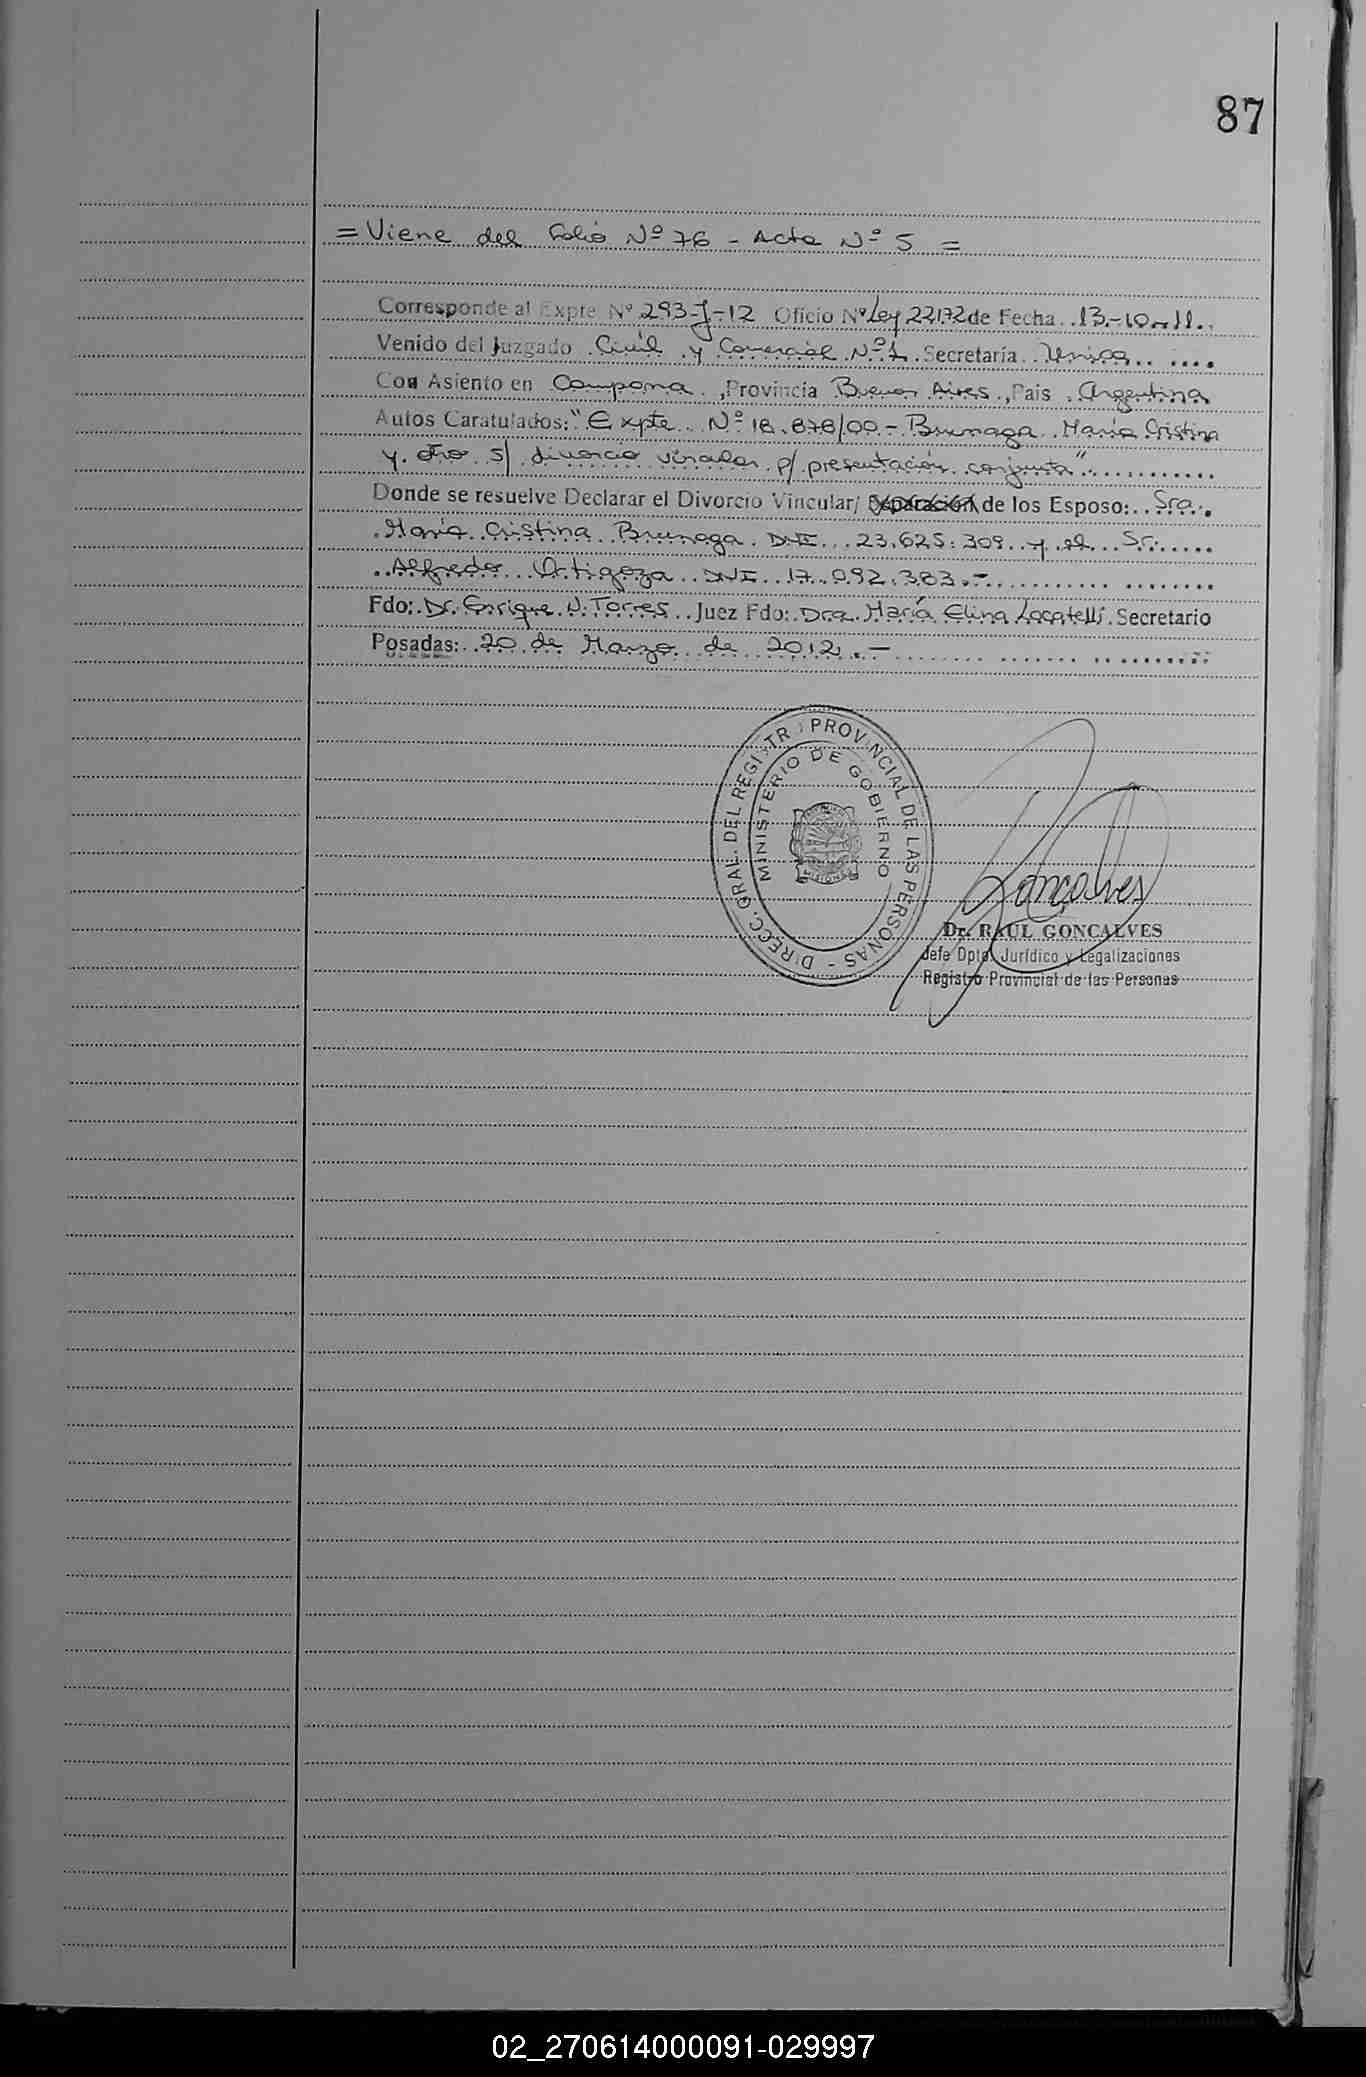 87
= Viene del folio Nº 76 - Acta Nº 5 =
Corresponde al Expte Nº 293-J-12 Oficio Nº Ley 22172 de Fecha 13-10-11.
Venido del Juzgado Civil y Comercial Nº 1 Secretaría Unica
Con Asiento en Campana, Provincia Buenos Aires, Pais Argentina
Autos Caratulados: "Expte Nº 18.878/00 - Brunaga María Cristina
y otro s/ divorcio vincular p/ presentación conjunta"
Donde se resuelve Declarar el Divorcio Vincular/ Separación de los Esposo: Sra.
María Cristina Brunaga DNI 23.625.309 y el Sr.
Alfredo Ortigoza DNI 17.092.383.-
Fdo: Dr. Enrique N. Torres Juez Fdo: Dra. María Elina Locatelli Secretario
Posadas: 20 de Marzo de 2012.-
DIRECC. GRAL. DEL REGISTRO PROVINCIAL DE LAS PERSONAS -
MINISTERIO DE GOBIERNO
MISIONES
Goncalves
Dr. RAUL GONCALVES
Jefe Dpto. Jurídico y Legalizaciones
Registro Provincial de las Personas
02_270614000091-029997